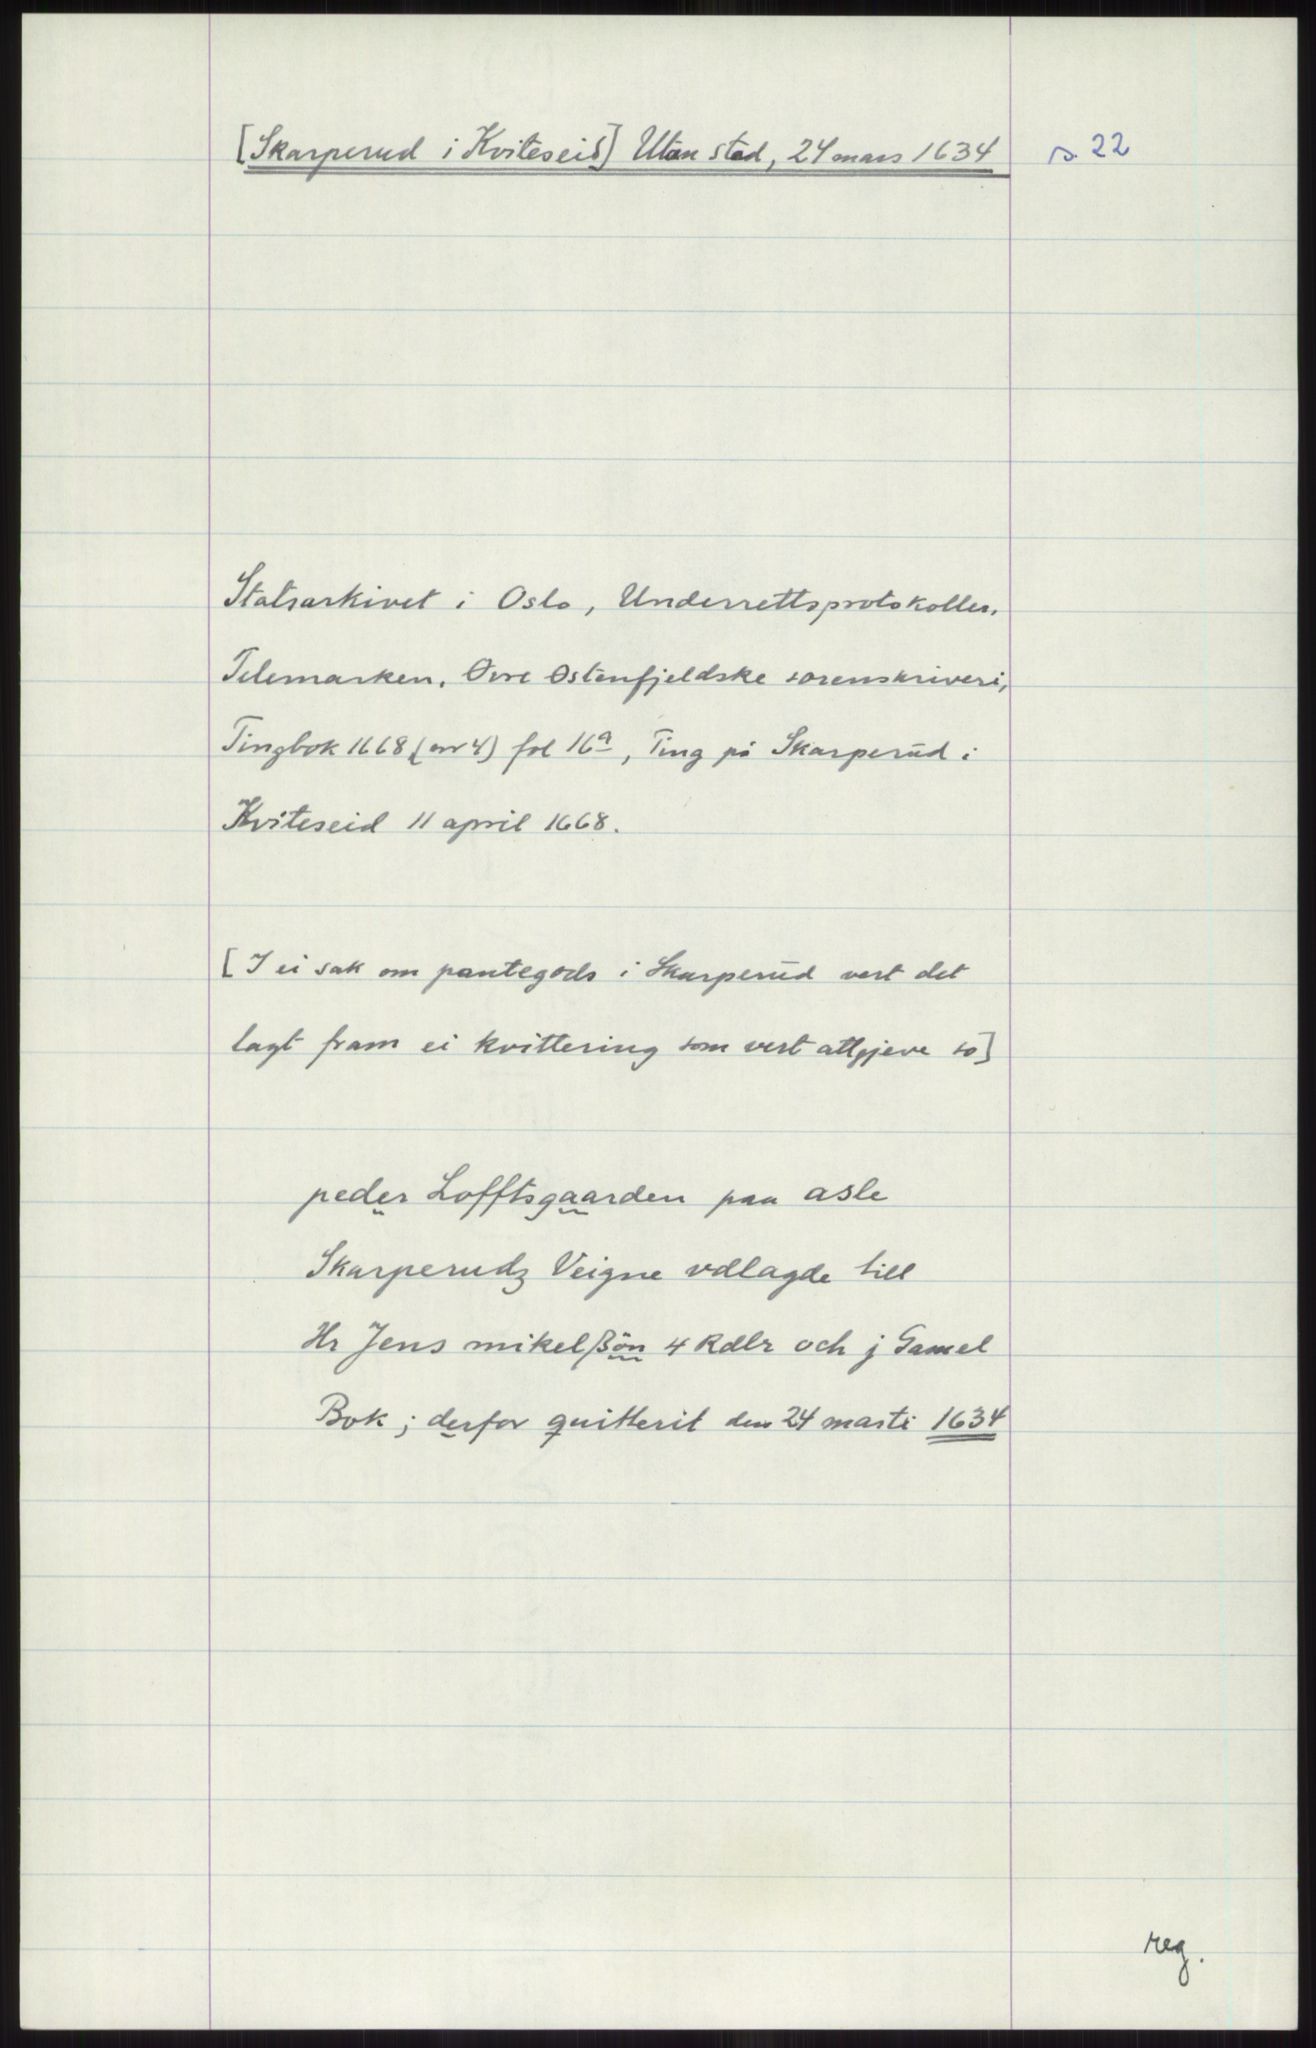 [Skarperud i Kviteseid] Utan stad, 24 mars 1634 s. 22
Statsarkivet i Oslo, Underrettsprotokoller.
Telemarken. Øvre Østenfjeldske sorenskriveri,
Tingbok 1668 (nr 4) fol 16a, Ting på Skarperūd i
Kviteseid 11 april 1668.
[I ei sak om pantegods i Skarperūd vert det
lagt fram ei kvittering som vert attgjeve so]
peder Lofftsgaarden paa asle
Skarperudz Veigne vdlagde till
Hr Jens mikelßön 4 Rdlr och j Gamel
Bok; derfor quitterit den 24 marti 1634
reg.